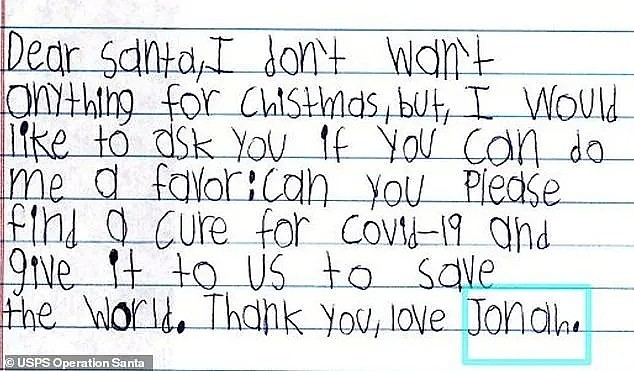 Dear Santa, I don't wan't
anything for Chistmas, but, I would
like to ask you if you can do
me a favor: can you Please
find a cure for covid-19 and
give it to us to save
the world. Thank you, love Jonah.
© USPS Operation Santa